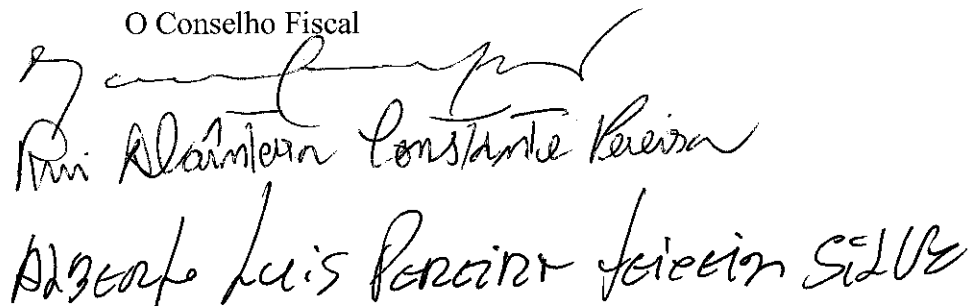 O Conselho Fiscal
Rui Alcântara Constante Pereira
Alberto Luis Pereira Teixeira Silva